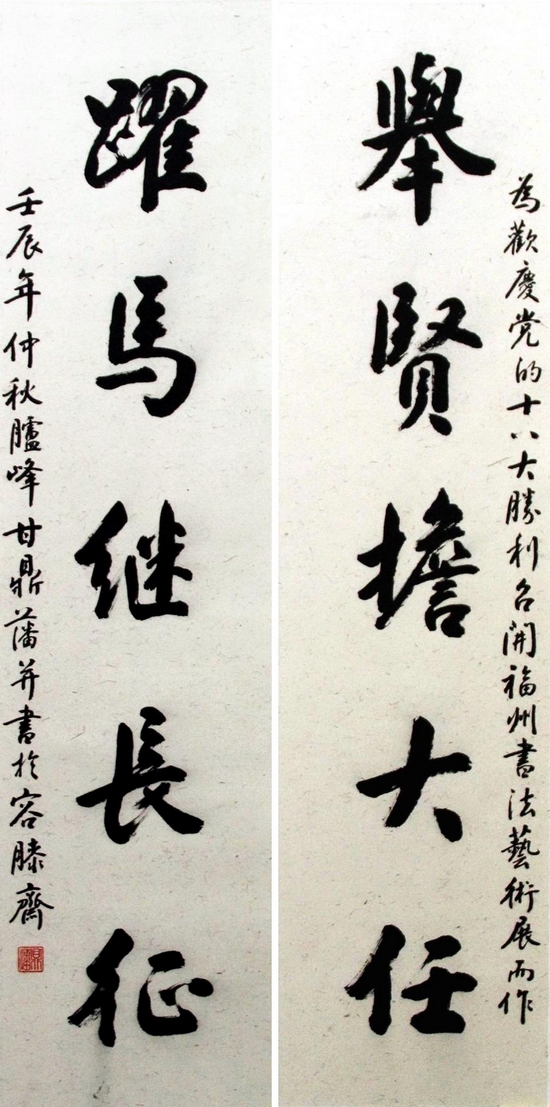 為歡慶党的十八大勝利召開福州書法藝術展而作
舉賢擔大任
躍馬继長征
壬辰年仲秋臚峰甘鼎藩并書於容膝齋